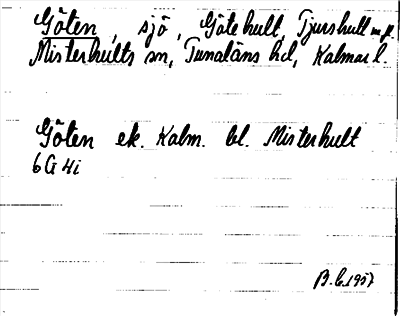 Göten, sjö, Götehult, Tjurshult m fl.
Misterhults sn, Tunaläns hd, Kalmar l.
Göten ek. Kalm. bl. Misterhult
6G 4i
B. L. 1957